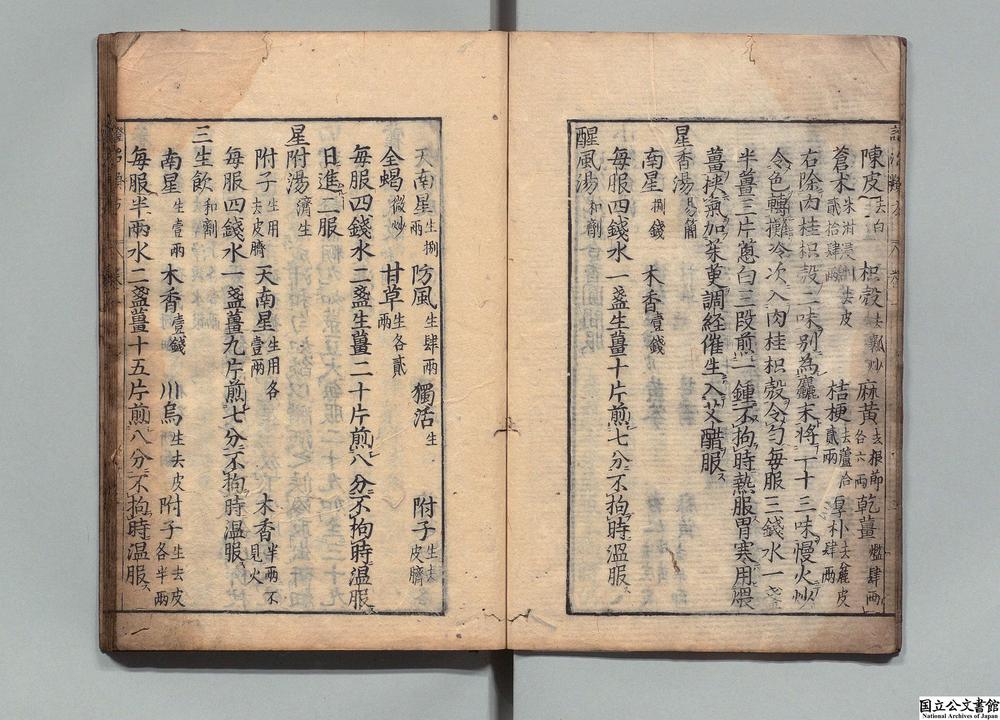 陳皮去白 枳殼去瓤炒 麻黄去根節各六兩 乾薑爁肆兩
蒼朮米泔浸去皮貳拾肆兩 桔梗去蘆各貳兩 厚朴去麤皮肆兩
右除肉桂枳殼二味別為麤末將一十三味慢火炒
令色轉攤冷次入肉桂枳殼令勻每服三錢水一盞
半薑三片蔥白三段煎一鍾不拘時熱服胃寒用煨
薑挾氣加茱萸調経催生入艾醋服
星香湯易簡
南星捌錢 木香壹錢
每服四錢水一盞生薑十片煎七分不拘時溫服
醒風湯和劑
天南星生捌兩 防風生肆兩 獨活生 附子生去皮臍
全蝎微炒 甘草生各貳兩
每服四錢水二盞生薑二十片煎八分不拘時温服
日進二服
星附湯濟生
附子生用去皮臍 天南星生用各壹兩 木香半兩不見火
每服四錢水一盞薑九片煎七分不拘時温服
三生飲和劑
南星生壹兩 木香壹錢 川烏生去皮 附子生去皮各半兩
每服半兩水二盞薑十五片煎八分不拘時温服
国立公文書館
National Archives of Japan